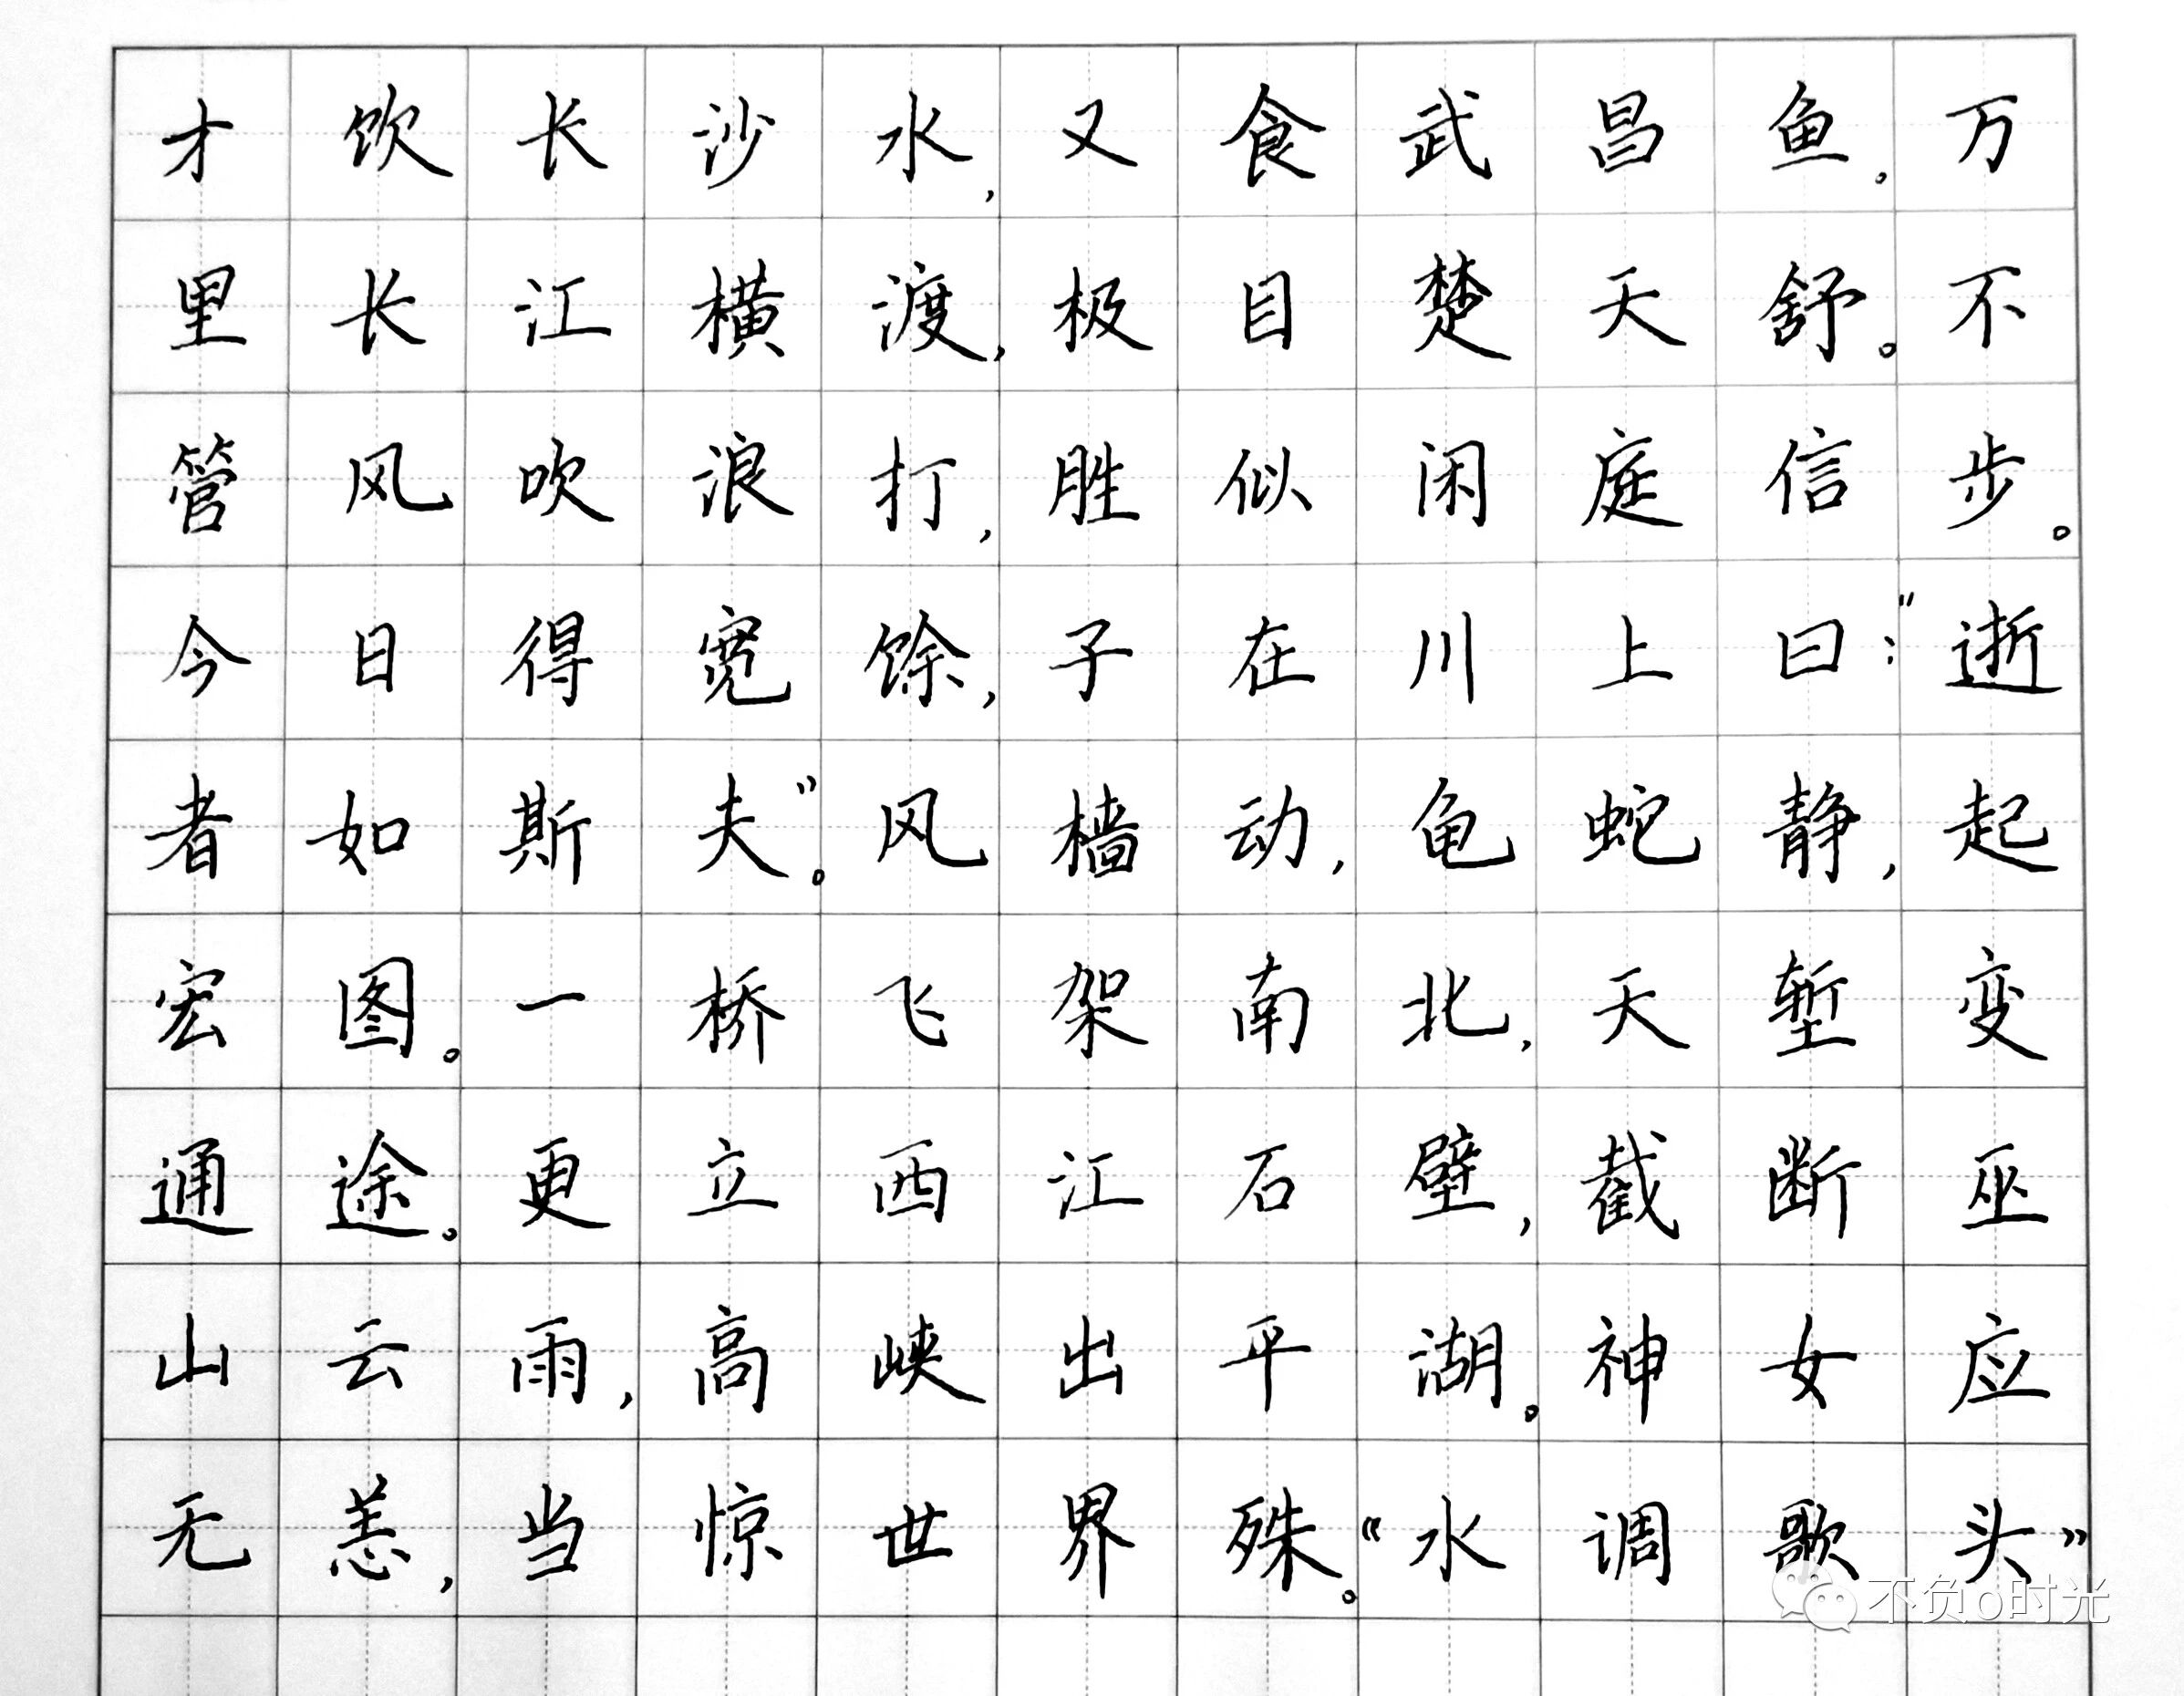 才饮长沙水,又食武昌鱼。万
里长江横渡,极目楚天舒。不
管风吹浪打,胜似闲庭信步。
今日得宽馀,子在川上曰:“逝
者如斯夫”。风樯动,龟蛇静,起
宏图。一桥飞架南北,天堑变
通途。更立西江石壁,截断巫
山云雨,高峡出平湖。神女应
无恙,当惊世界殊。“水调歌头”
不负o时光